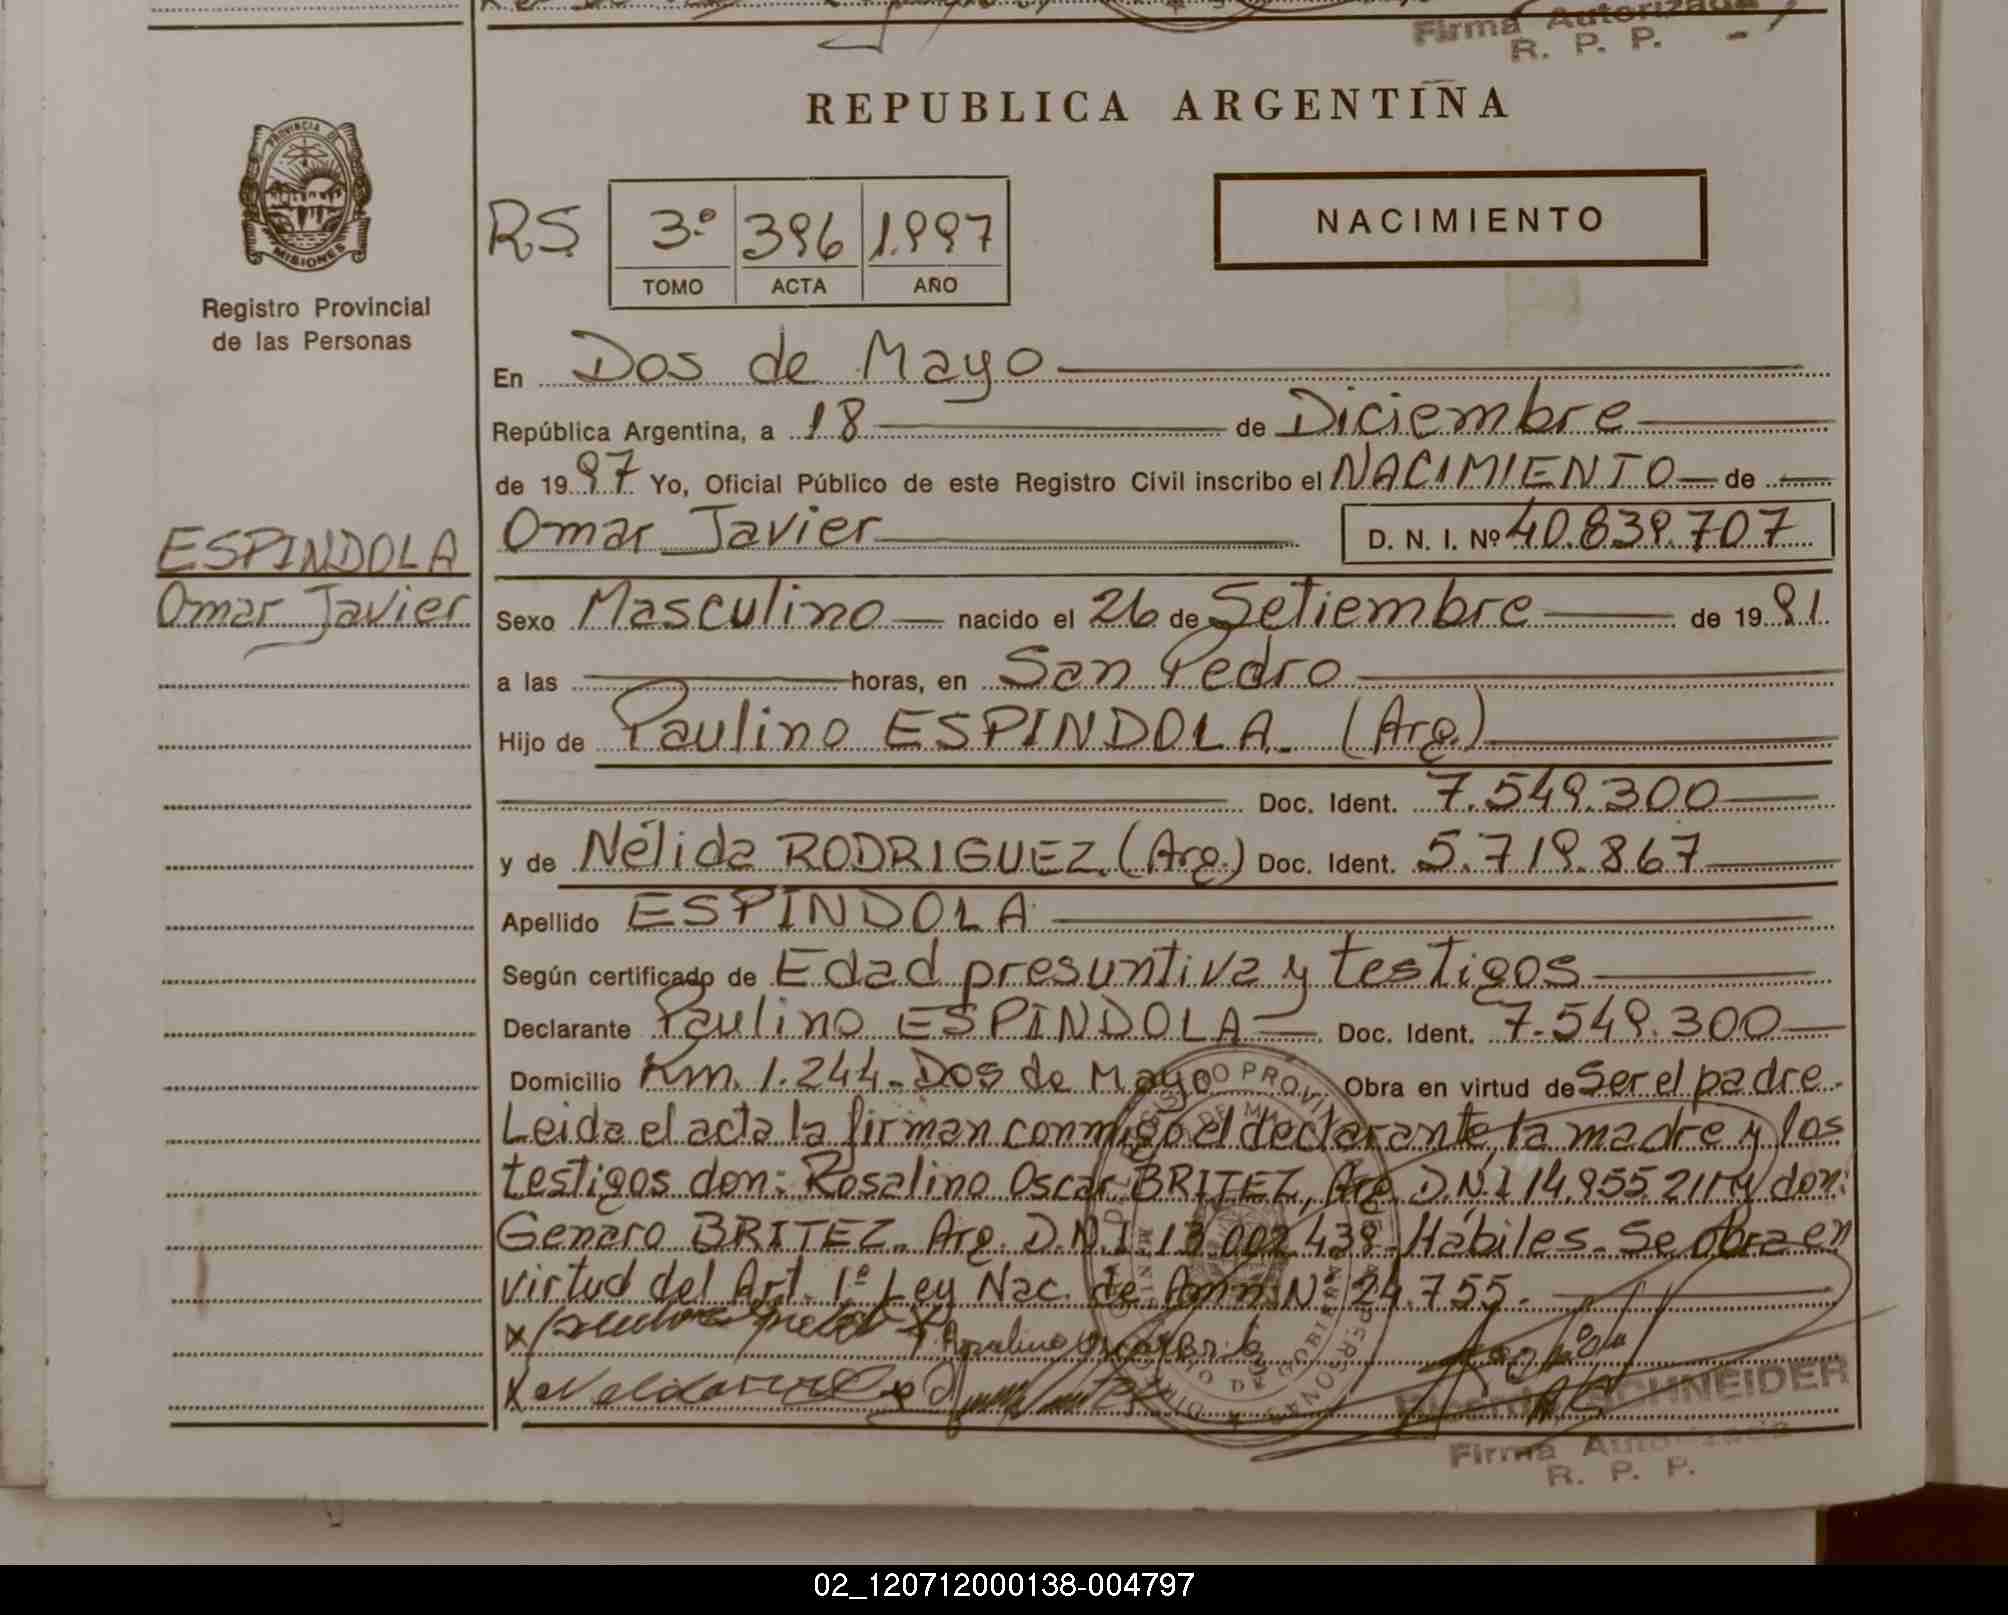 Firma Autorizada
R. P. P.
REPUBLICA ARGENTINA
PROVINCIA DE
MISIONES
Registro Provincial
de las Personas
RS 3º 396 1.997
TOMO ACTA AÑO
NACIMIENTO
En Dos de Mayo
República Argentina, a 18 de Diciembre
de 1997 Yo, Oficial Público de este Registro Civil inscribo el NACIMIENTO de
ESPINDOLA
Omar Javier
Omar Javier D. N. I. Nº 40.839.707
Sexo Masculino nacido el 26 de Setiembre de 1981
a las horas, en San Pedro
Hijo de Paulino ESPINDOLA. (Arg.)
Doc. Ident. 7.549.300
y de Nélida RODRIGUEZ. (Arg.) Doc. Ident. 5.719.867
Apellido ESPINDOLA
Según certificado de Edad presuntiva y testigos
Declarante Paulino ESPINDOLA Doc. Ident. 7.549.300
Domicilio Km. 1.244. Dos de Mayo Obra en virtud de Ser el padre.
Leida el acta la firman conmigo el declarante, la madre y los
testigos don: Rosalino Oscar BRITEZ, Arg. D.N.I 14.955.211 y don:
Genaro BRITEZ. Arg. D.N.I. 13.002.439. Hábiles. Se obra en
virtud del Art. 1º Ley Nac. de Amn. Nº 24.755.
SCHNEIDER
Firma Autorizada
R. P. P.
02_120712000138-004797